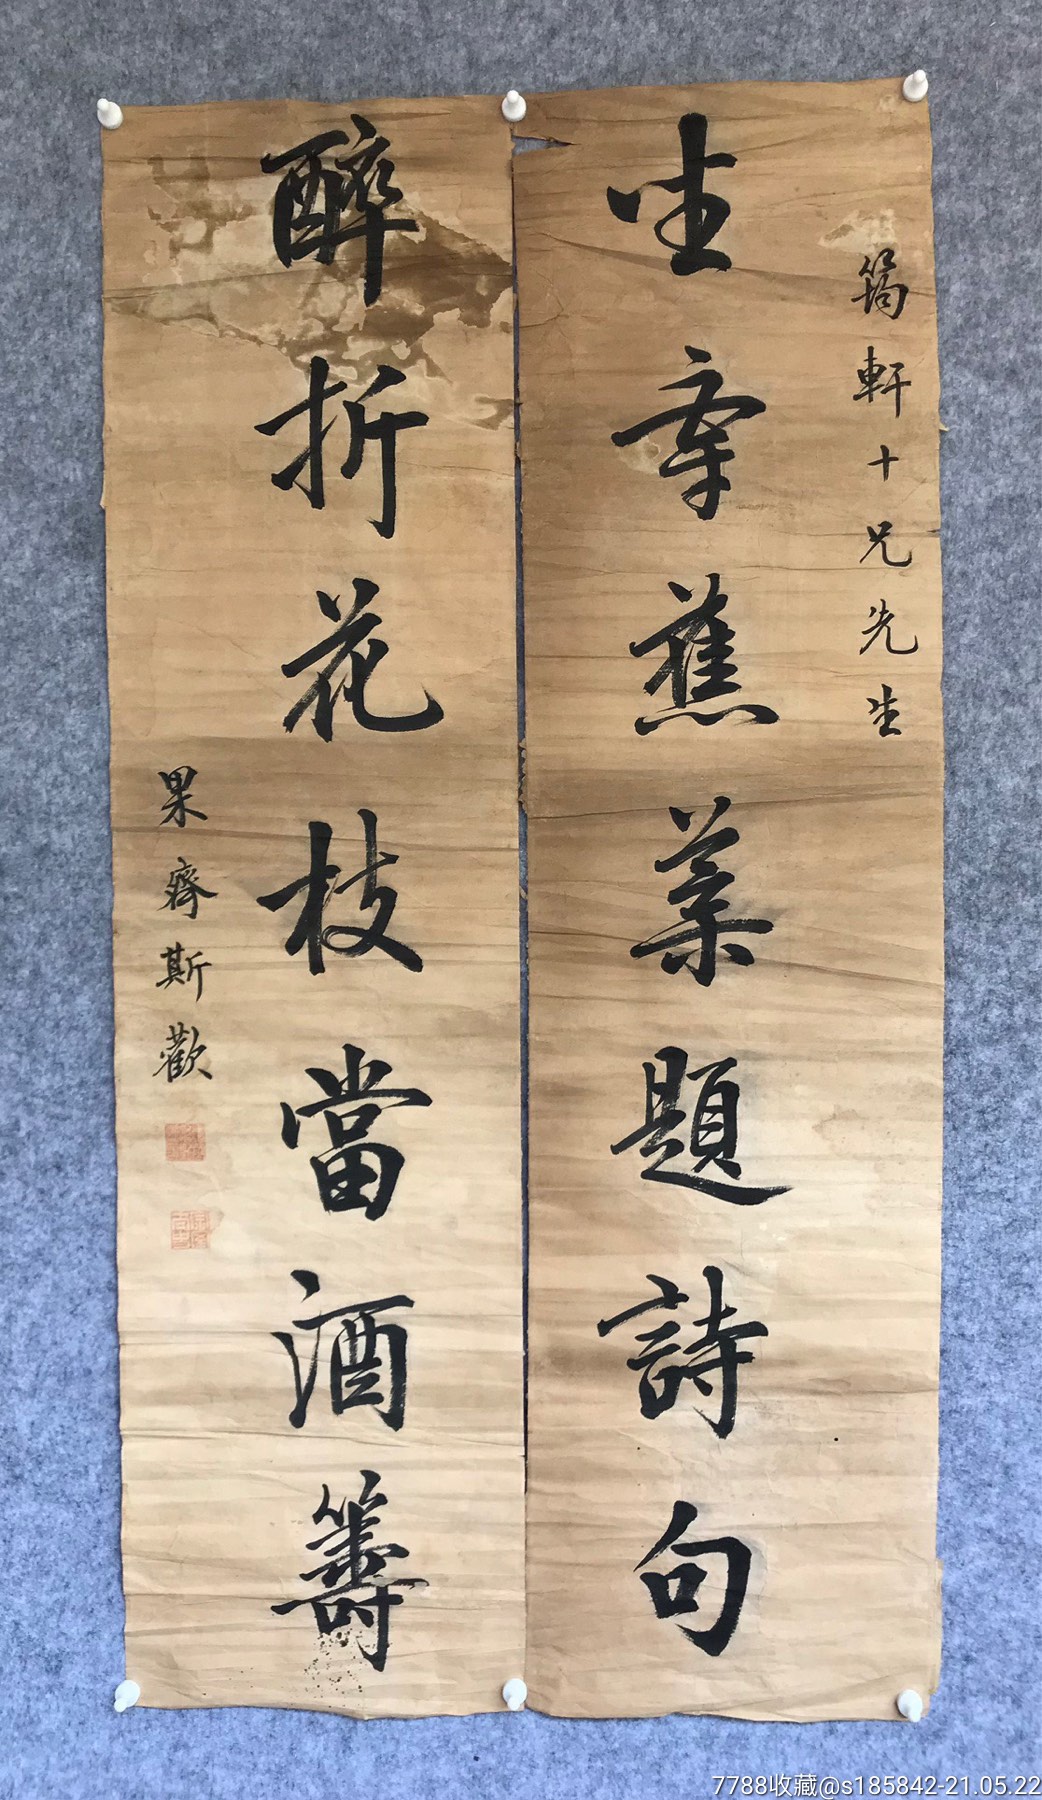 筠軒十兄先生
坐牽蕉葉題詩句
醉折花枝當酒籌
果齋斯歡
7788收藏@s185842-21.05.22